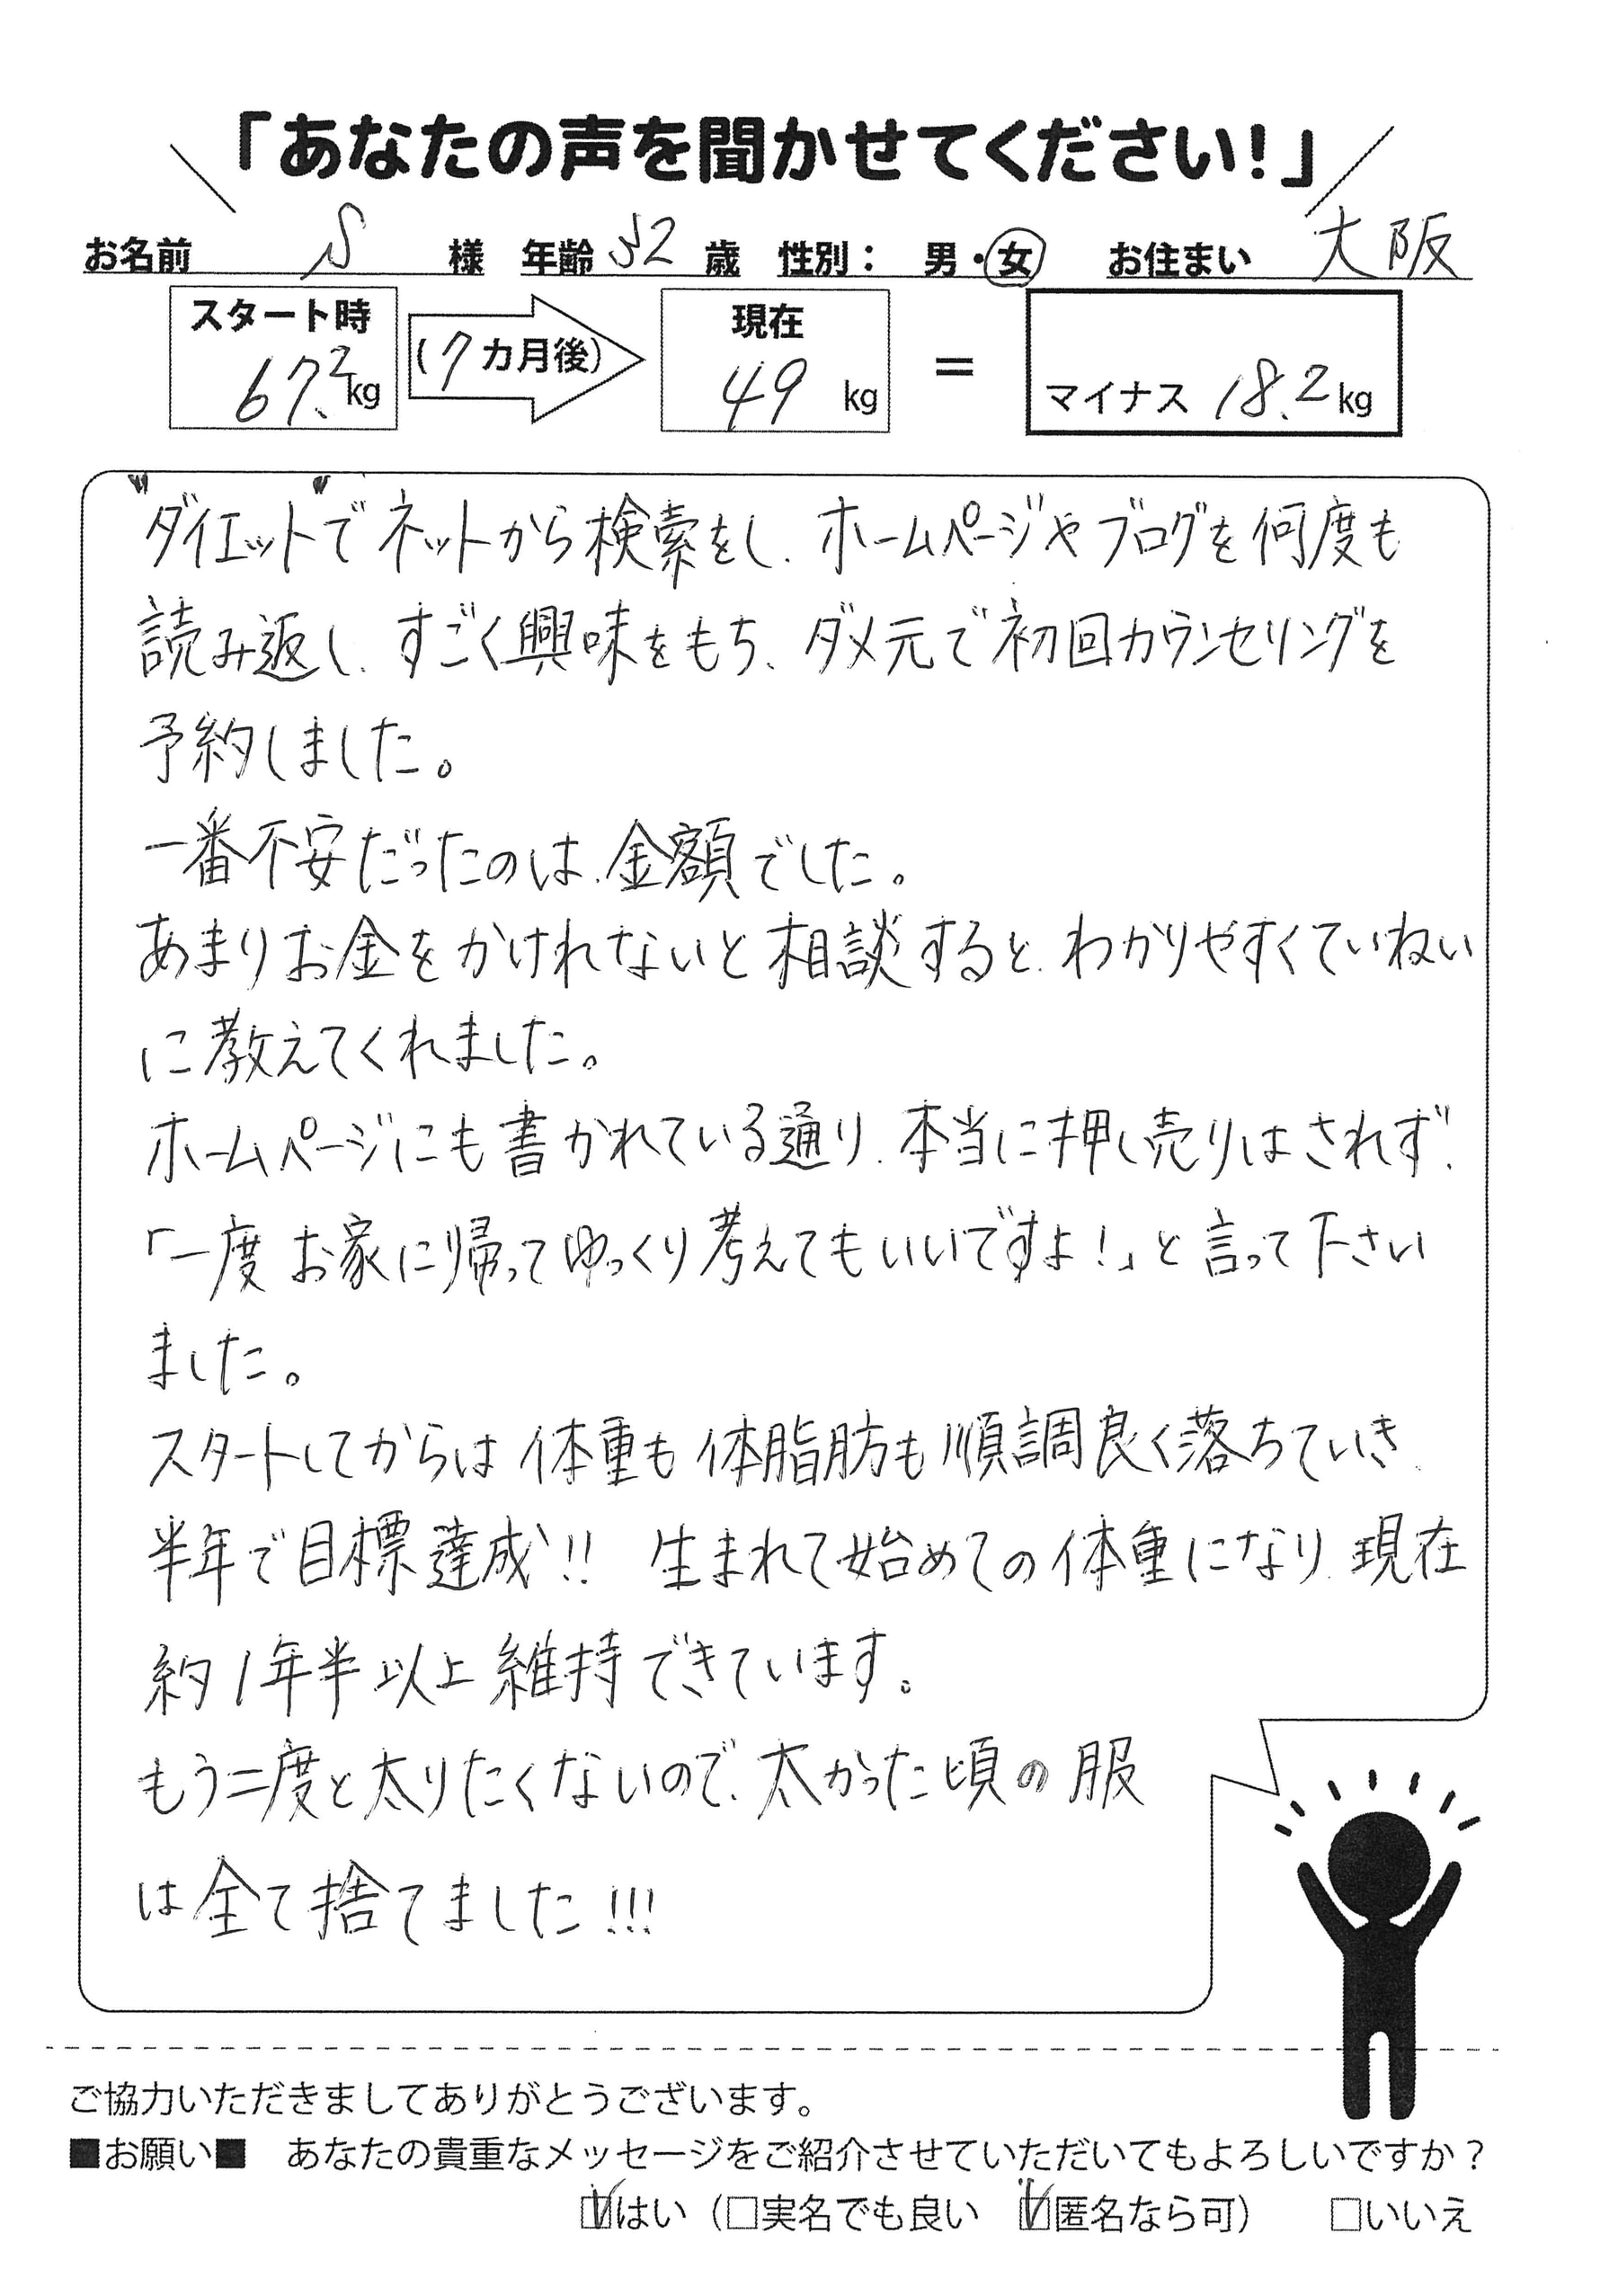 「あなたの声を聞かせてください!」
お名前 S 様 年齢 52 歳 性別: 男・女 お住まい 大阪
スタート時 67.2kg (7カ月後) 現在 49 kg = マイナス 18.2kg
"ダイエット"でネットから検索をし、ホームページやブログを何度も
読み返し、すごく興味をもち、ダメ元で初回カウンセリングを
予約しました。
一番不安だったのは、金額でした。
あまりお金をかけれないと相談すると、わかりやすくていねい
に教えてくれました。
ホームページにも書かれている通り、本当に押し売りはされず、
「一度お家に帰ってゆっくり考えてもいいですよ!」と言って下さい
ました。
スタートしてからは体重も体脂肪も順調良く落ちていき、
半年で目標達成!! 生まれて始めての体重になり、現在
約1年半以上維持できています。
もう二度と太りたくないので、太かった頃の服
は全て捨てました!!!
ご協力いただきましてありがとうございます。
■お願い■ あなたの貴重なメッセージをご紹介させていただいてもよろしいですか?
☑はい(□実名でも良い ☑匿名なら可) □いいえ